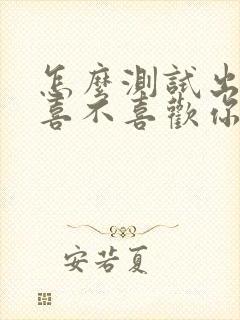 怎麼測試出
喜不喜歡你
安若夏